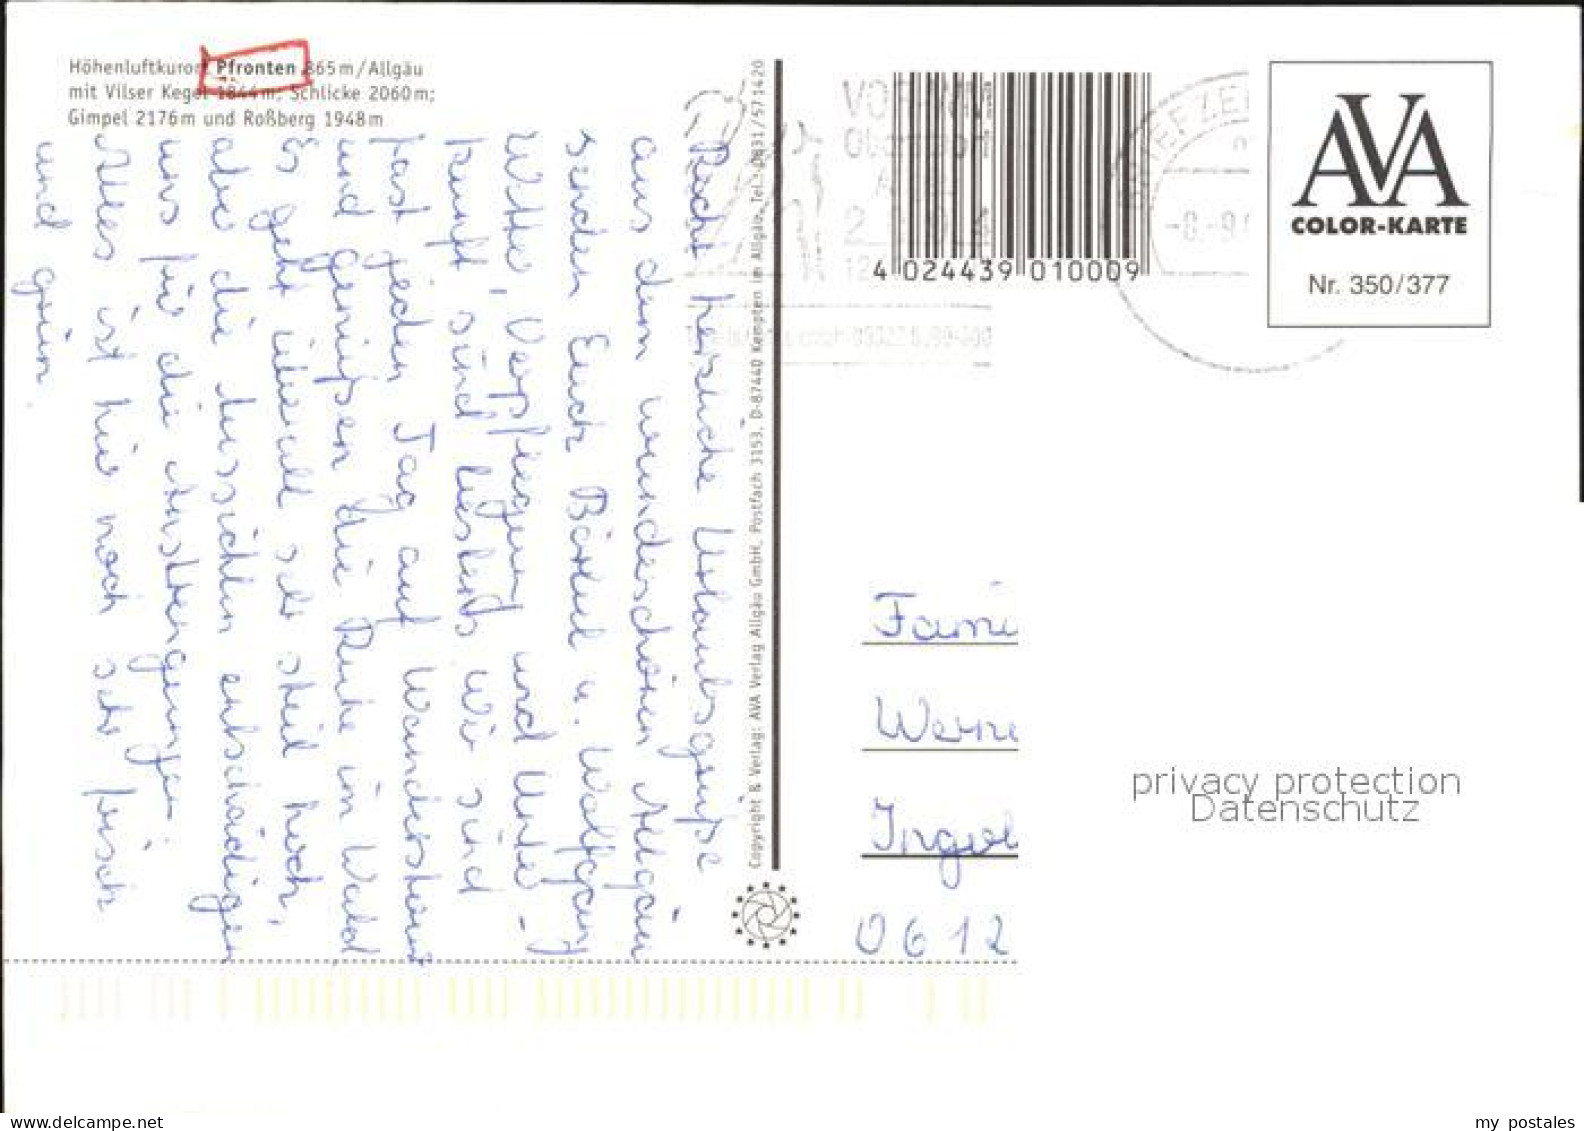 Höhenluftkurort Pfronten 865m/Allgäu
mit Vilser Kegel 1844m; Schlicke 2060m;
Gimpel 2176m und Roßberg 1948m
Recht herzliche Urlaubsgrüße
aus dem wunderschönen Allgäu
senden Euch Bärbel u. Wolfgang
Wetter, Verpflegung und Unter-
kunft sind bestens wir sind
fast jeden Tag auf Wanderstour
und genießen die Ruhe im Wald
Es geht überall sehr steil hoch,
aber die Aussichten entschädigen
uns für die Anstrengungen.
Alles ist hier noch sehr frisch
und grün.
Copyright & Verlag: AVA Verlag Allgäu GmbH, Postfach 3153, D-87440 Kempten im Allgäu, Tel.: 0831/571420
4 024439 010009
BRIEFZE
-6.-9.
AVA
COLOR-KARTE
Nr. 350/377
Fami
Werne
Ingol
0612
privacy protection
Datenschutz
www.delcampe.net
my postales